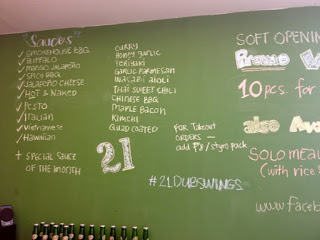 "Sauces"
✓ Smokehouse BBQ
✓ Buffalo
✓ Mango Jalapeño
✓ Spicy BBQ
✓ Jalapeño Cheese
✓ Hot & Naked
✓ Pesto
✓ Italian
✓ Vietnamese
✓ Hawaiian
+ Special Sauce
of the Month
Curry
Honey Garlic
Teriyaki
Garlic Parmesan
Wasabi Aioli
Thai Sweet Chili
Chinese BBQ
Maple Bacon
Kimchi
Quad Coated
21
For Takeout
Orders
add ₱3/styro pack
#21DUBSWINGS
SOFT OPENIN
Promo
10 pcs. for
also Ava
SOLO MEAL
(with rice
www.faceb